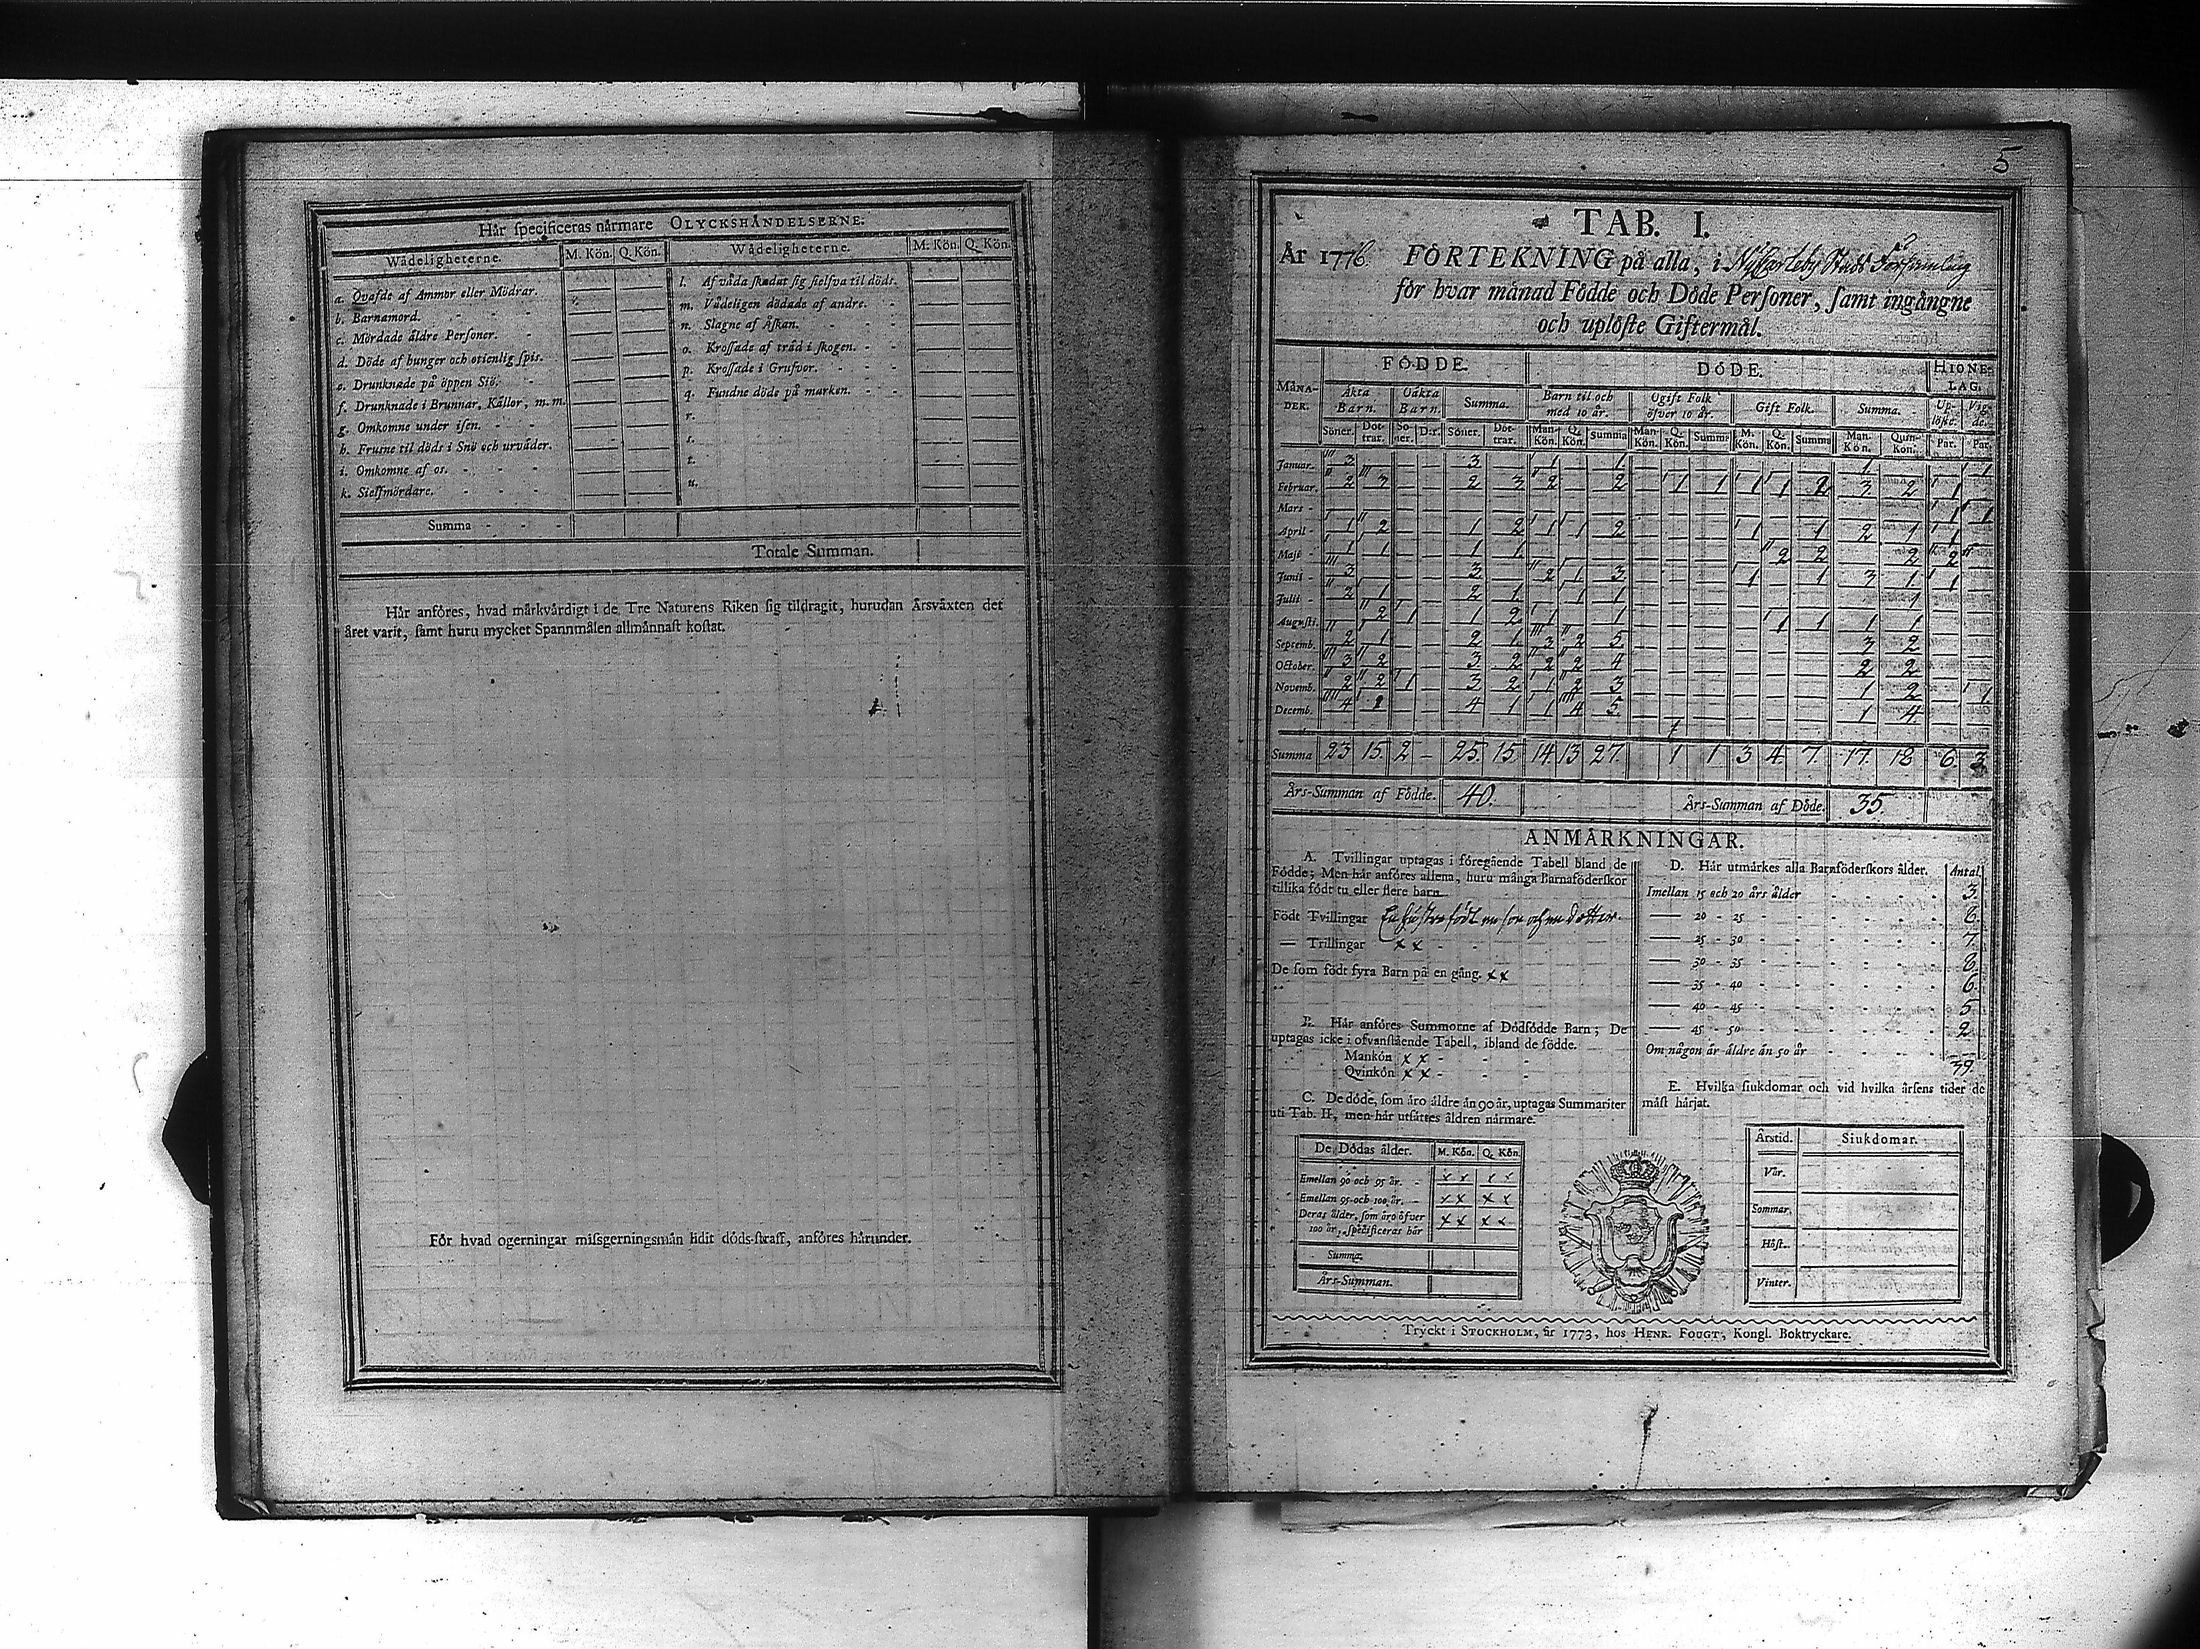 Här specificeras närmare OLYCKSHÄNDELSERNE:
Wådeligheterne. M. Kön. Q. Kön. Wådeligheterne. M. Kön. Q. Kön.
a. Qvafde af Ammor eller Mödrar. — — l. Af våda skadat sig sielfva til döds. — —
b. Barnamord. — — m. Vådeligen dödade af andre. — —
c. Mördade äldre Personer. — — n. Slagne af Åskan. — —
d. Döde af hunger och otienlig spis. — — o. Krossade af träd i skogen. — —
e. Drunknade på öppen Siö. — — p. Krossade i Grufvor. — —
f. Drunknade i Brunnar, Källor, m.m. — — q. Fundne döde på marken. — —
g. Omkomne under isen. — — r. — —
h. Frusne til döds i Snö och urväder. — — s. — —
i. Omkomne af os. — — t. — —
k. Sielfmördare. — — u. — —
Summa
Totale Summan.
Här anföres, hvad märkvärdigt i de Tre Naturens Riken sig tildragit, hurudan Årsväxten det
året varit, samt huru mycket Spannmålen allmännast kostat.
För hvad ogerningar missgerningsmän lidit döds-straff, anföres härunder.
5
TAB. I.
År 1776. FÖRTEKNING på alla, i Nycarleby Stads Församling
för hvar månad Födde och Döde Personer, samt ingångne
och uplöste Giftermål.
FÖDDE. DÖDE. HIONE-
LAG.
MÅNA-
DER. Äkta
Barn. Oäkta
Barn. Summa. Barn til och
med 10 år. Ogift Folk
öfver 10 år. Gift Folk. Summa. Up-
löste. Vig-
de.
Söner. Döt-
trar. Sö-
ner. D:r. Söner. Döt-
trar. Man-
Kön. Q.
Kön. Summa Man-
Kön. Q.
Kön. Summa M.
Kön. Q.
Kön. Summa Man-
Kön. Quin-
Kön. Par. Par.
Januar. 3 — — — 3 — 1 — 1 — — — — — — 1 — — 1
Februar. 2 3 — — 2 3 2 — 2 — 1 1 1 1 2 3 2 1 —
Mars — — — — — — — — — — — — — — — — — 1 1
April 1 2 — — 1 2 1 1 2 — — — 1 — 1 2 1 1 —
Maji 1 1 — — 1 1 — — — — — — — 2 2 — 2 2
Junii 3 — — — 3 — 2 1 3 — — — 1 — 1 3 1 1 —
Julii 2 1 — — 2 1 — 1 1 — — — — — — — 1 — —
Augusti. — 2 1 — 1 2 1 — 1 — — — — 1 1 1 1 — —
Septemb. 2 1 — — 2 1 3 2 5 — — — — — — 3 2 — —
October. 3 2 — — 3 2 2 2 4 — — — — — — 2 2 — —
Novemb. 2 2 1 — 3 2 1 2 3 — — — — — — 1 2 — 1
Decemb. 4 1 — — 4 1 1 4 5 — — — — — — 1 4 — —
Summa 23 15. 2 — 25. 15 14. 13 27. 1 1 3 4. 7. 17. 18 6. 3
Års-Summan af Födde. 40. Års-Summan af Döde. 35.
ANMÄRKNINGAR.
A. Tvillingar uptagas i föregående Tabell bland de
Födde; Men här anföres allena, huru många Barnaföderskor
tillika födt tu eller flere barn
Födt Tvillingar En hustru födt en son och en dotter.
— Trillingar x x
De som födt fyra Barn på en gång. x x
B. Här anföres Summorne af Dödfödde Barn; De
uptagas icke i ofvanstående Tabell, ibland de födde.
Mankön x x
Qvinkön x x
C. De döde, som äro äldre än 90 år, uptagas Summariter
uti Tab. II, men här utsättes åldren närmare.
De Dödas ålder. M. Kön. Q. Kön.
Emellan 90 och 95 år. x x x x
Emellan 95 och 100 år. x x x x
Deras ålder, som äro öfver
100 år, specificeras här x x x x
Summa.
Års-Summan.
D. Här utmärkes alla Barnföderskors ålder. Antal
Imellan 15 och 20 års ålder 3.
— 20 - 25 8.
— 25 - 30 7.
— 30 - 35 8.
— 35 - 40 6.
— 40 - 45 5
— 45 - 50 2
Om någon är äldre än 50 år —
39.
E. Hvilka siukdomar och vid hvilka årsens tider de
mäst härjat.
Årstid. Siukdomar.
Vår.
Sommar.
Höst.
Vinter.
Tryckt i STOCKHOLM, år 1773, hos HENR. FOUGT, Kongl. Boktryckare.